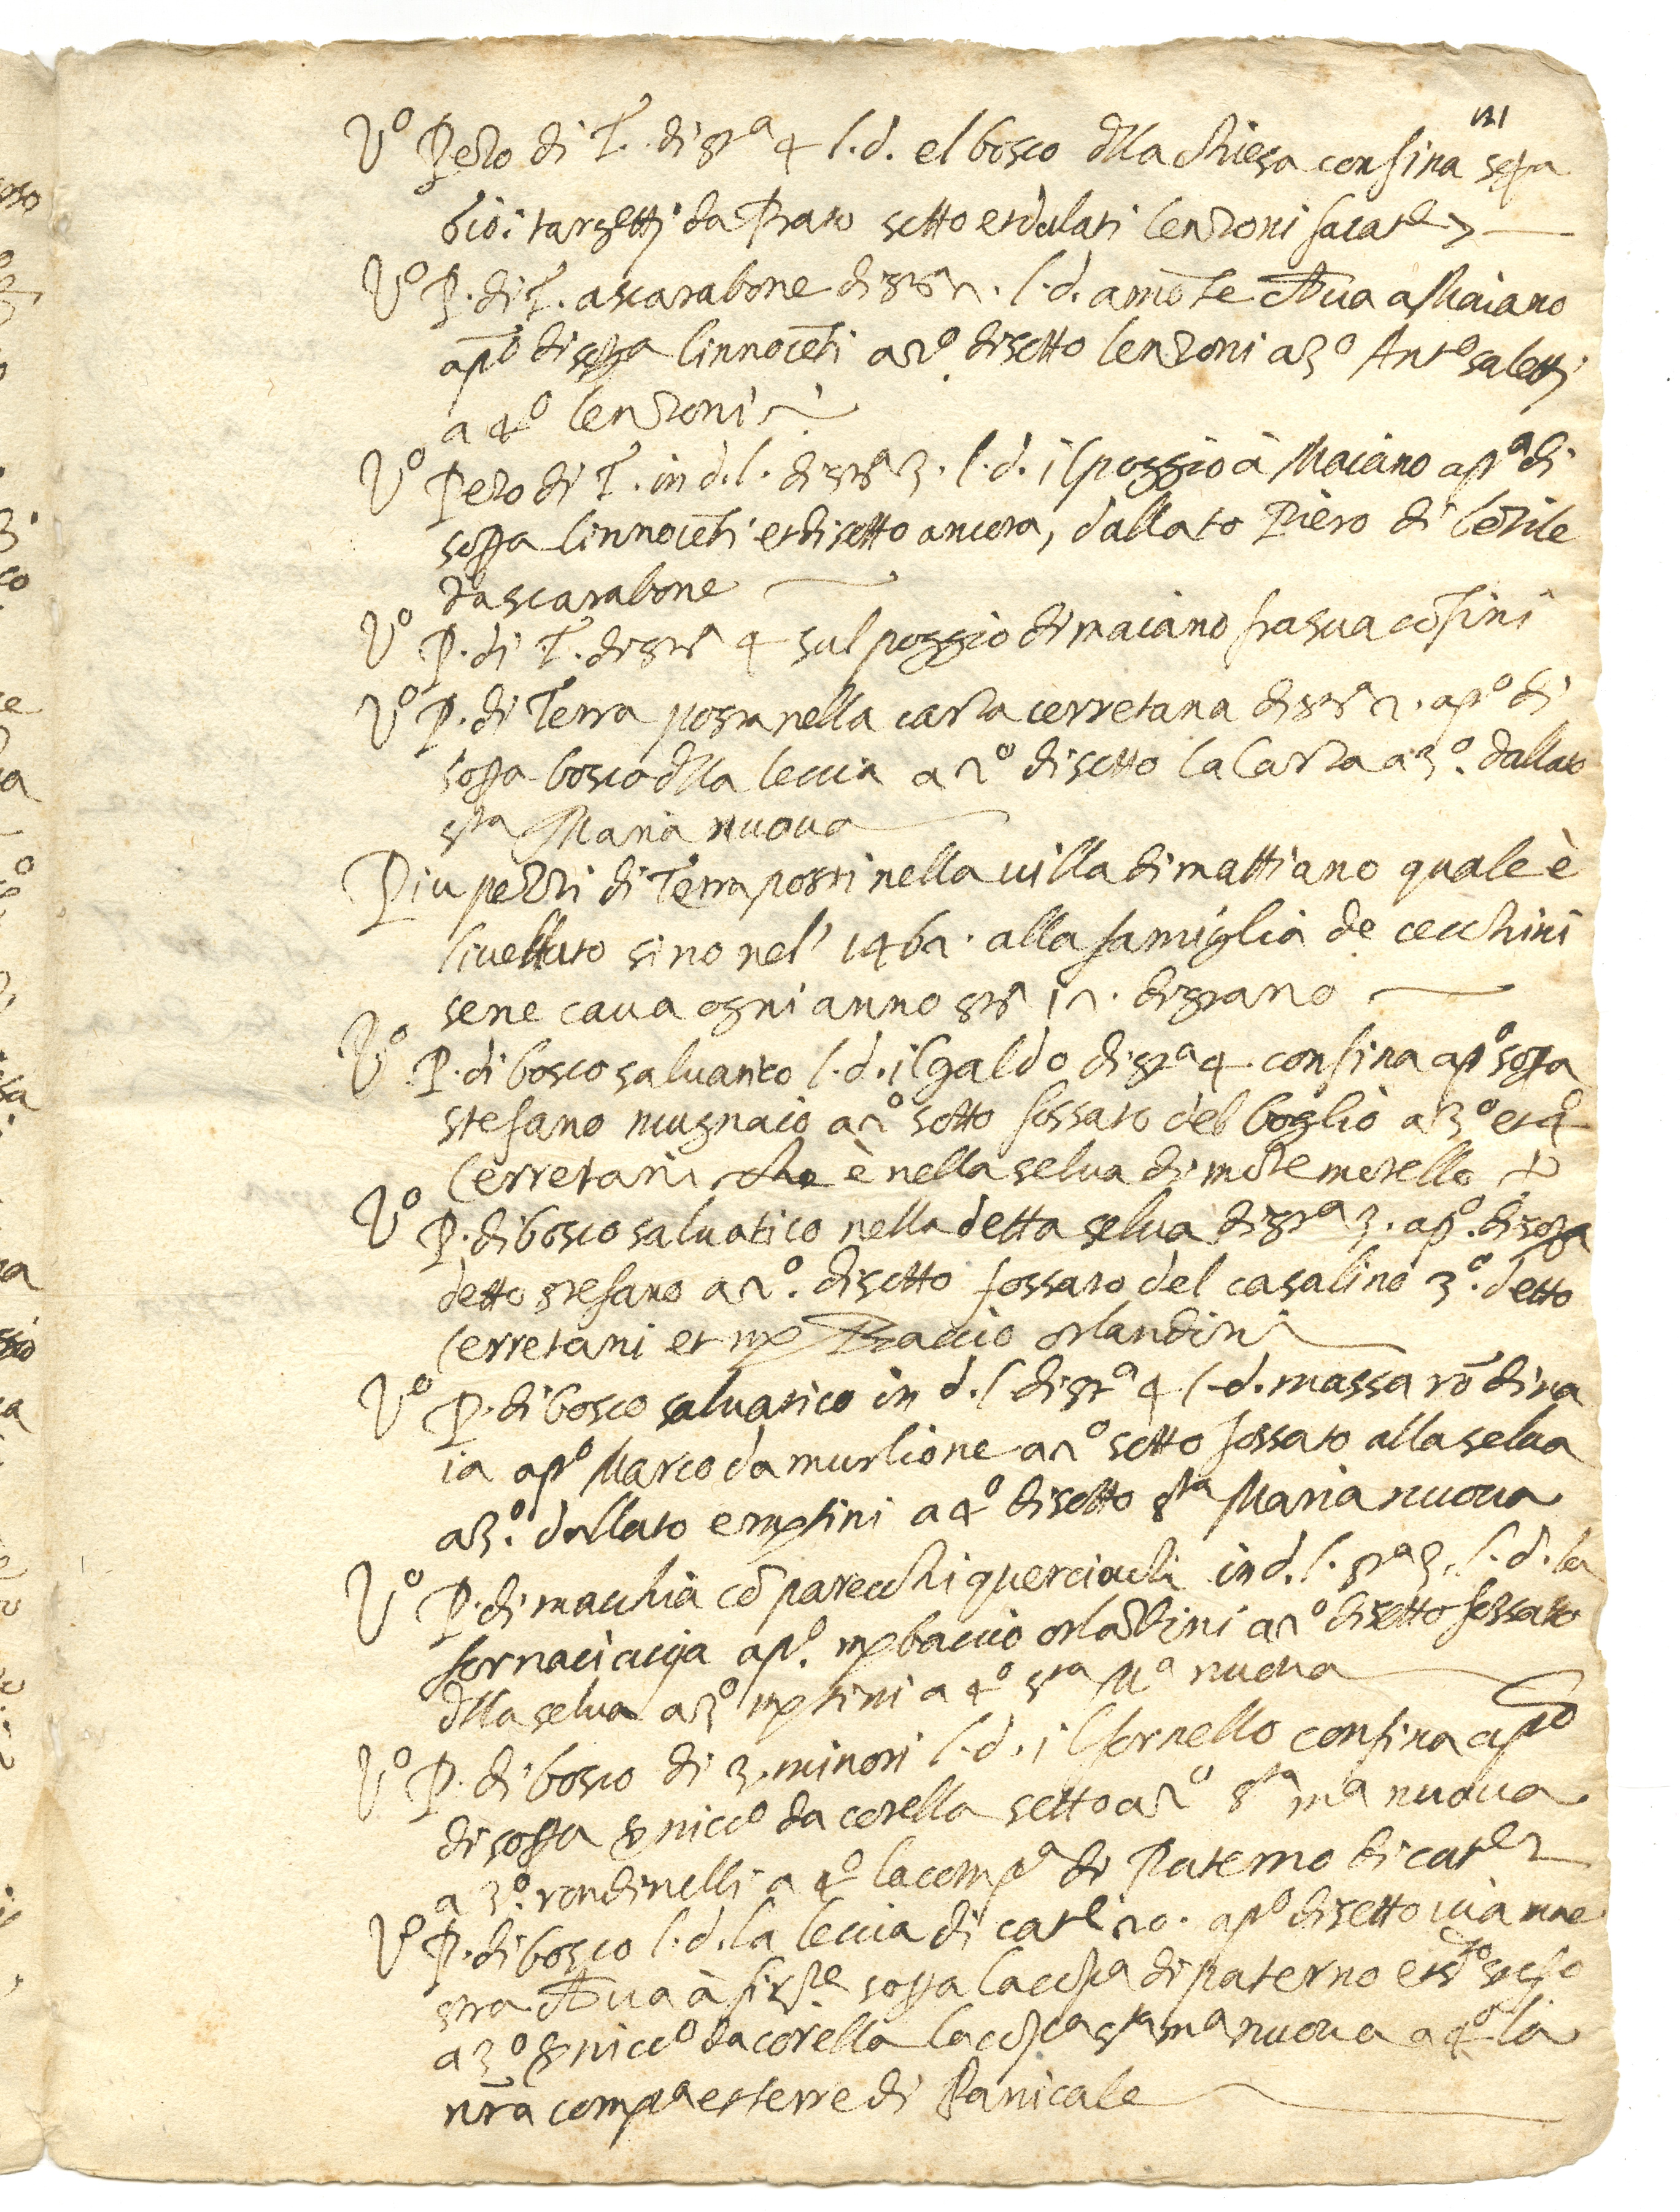 Vº Pezo di T. di str.ª 4 l.d. el bosco dlla chiesa confina sopra
bio: targetti da Prato sotto et dalati lenzoni
Vº P. di T. ascarabone di str.ª 2. l.d. amōte Aua a Maiano
apº di sopra linnocēti a 2º di sotto lenzoni a 3º Antº saletti
a 4º lenzoni
Vº Pezo di T. in d.l. di strª 3. l.d. il poggio à Maiano apº di
sopra linnocēti et di sotto ancora, dallato Piero di
da scarabone
Vº P. di T. di strª 4 sul poggio di maiano fra sua cōfini
Vº P. di Terra posta nella carza cerretana di strª 2. apº di
sopra bosco dlla leccia a 2º di sotto la Carza a 3º. dallato
sta Maria nuova
Piu pezzi di Terra posti nella villa di mattiano quale è
livellato sino nel' 1462. alla famiglia de cecchini
se ne cava ogni anno strª 12. di grano
Vº P. di bosco salvatico l.d. il galdo di strª 4 confina apº sopra
stefano mugnaio a 2º sotto fossato del boglio a 3º et 4º
Cerretani che è nella selva di mōte morello
Vº P. di bosco salvatico nella detta selva di strª 3. apº. di sopra
detto stefano a 2º. di sotto fossato del casalino 3º. detto
Cerretani et mr Baccio orlandini
Vº P. di bosco salvatico in d.l di strª 4 l.d. massa rōdina
ia apº Marco da murlione a 2º sotto fossato alla selva
a 3º. dallato emptini a 4º di sotto sta Maria nuova
Vº P. di macchia cō parecchi querciuoli in d.l. strª 3. l.d. la
fornaciaccia apº. mr baccio orlādini a 2º di sotto fossato
dlla selva a 3º mptini a 4º sta Mª nuova
Vº P. di bosco di 3. minori l.d. il fornello confina apº
di sopra ser niccº da corella sotto a 2º sta mª nuova
a 3º. rondinelli a 4º la compª di Paterno di catre 2
Vº P. di bosco l.d. la leccia di catre 20. apº di sotto via mae
stra Aua à firze sopra la cōpª di paterno et dº
a 3º ser niccº da corella la cōpª sta mª nuova a 4º la
nrā compª et terre di Panicale